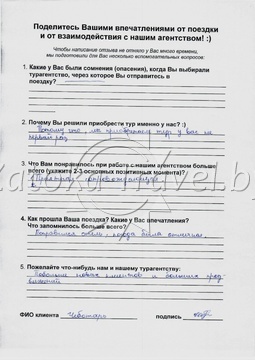 Поделитесь Вашими впечатлениями от поездки
и от взаимодействия с нашим агентством! :)
Чтобы написание отзыва не отняло у Вас много времени,
мы подготовили для Вас несколько вспомогательных вопросов:
1. Какие у Вас были сомнения (опасения), когда Вы выбирали
турагентство, через которое Вы отправитесь в
поездку?
2. Почему Вы решили приобрести тур именно у нас? :)
Потому что, мы приобретаем тур у вас не
первый раз
3. Что Вам понравилось при работе с нашим агентством больше
всего (укажите 2-3 основных позитивных момента)?
4. Как прошла Ваша поездка? Какие у Вас впечатления?
Что запомнилось больше всего?
Понравился отель, погода была отличная
5. Пожелайте что-нибудь нам и нашему турагентству:
Побольше новых клиентов и больших
ФИО клиента Чеботарь подпись
katoka-travel.by